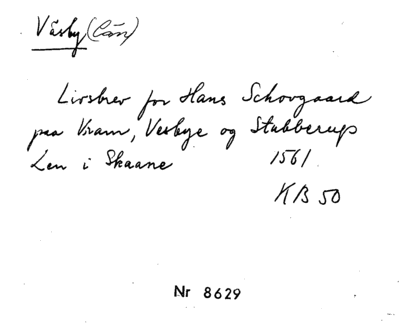 Väsby (Län)
Livsbrev for Hans Schovgaard
paa Vram, Vesbye og Stubberup
Len i Skaane 1561
KB 50
Nr 8629